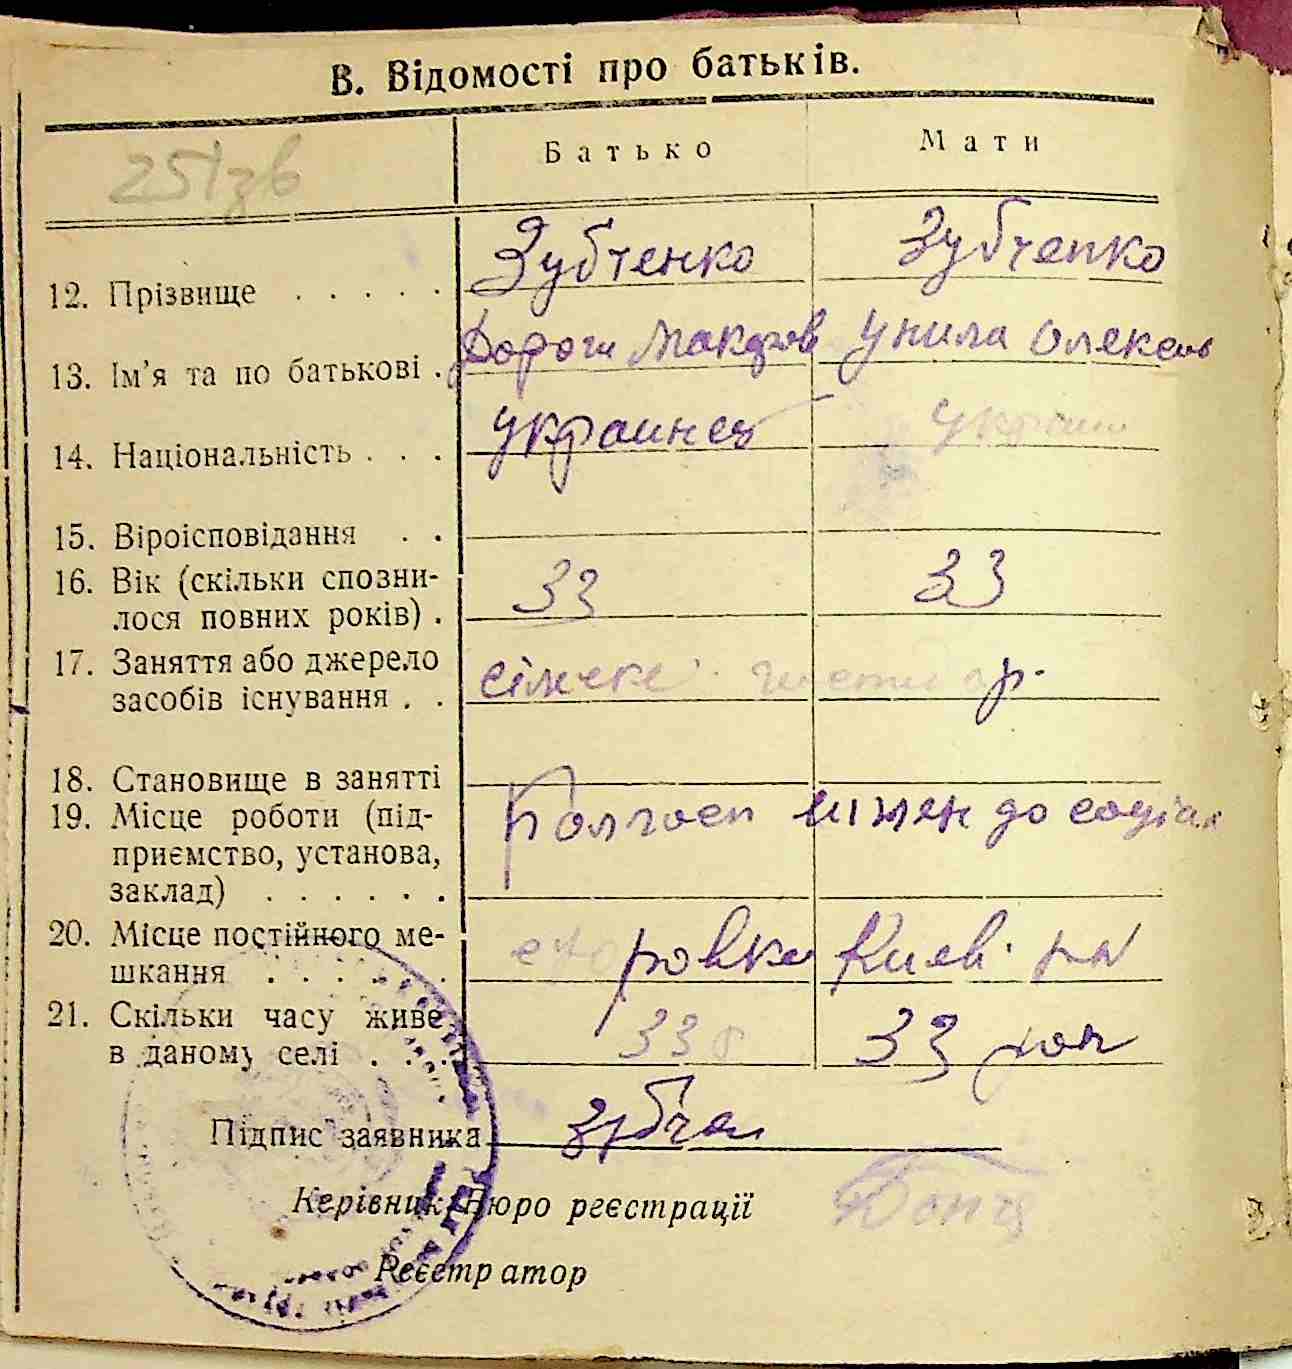 В. Відомості про батьків.
251зв
Батько Мати
12. Прізвище . . . . . Зубченко Зубченко
13. Ім'я та по батькові . Макаров Унила Олексеів
14. Національність . . . украинец україн
15. Віроісповідання . .
16. Вік (скільки спозни-
лося повних років) . 33 33
17. Заняття або джерело
засобів існування . . сільске
18. Становище в занятті
19. Місце роботи (під-
приємство, установа,
заклад) . . . . . . Колгосп до соціал
20. Місце постійного ме-
шкання . . . . . Киев
21. Скільки часу живе
в даному селі . . . 33 г 33 рок
Підпис заявника Зубчен
Керівник Бюро реєстрації Донц
Реєстратор